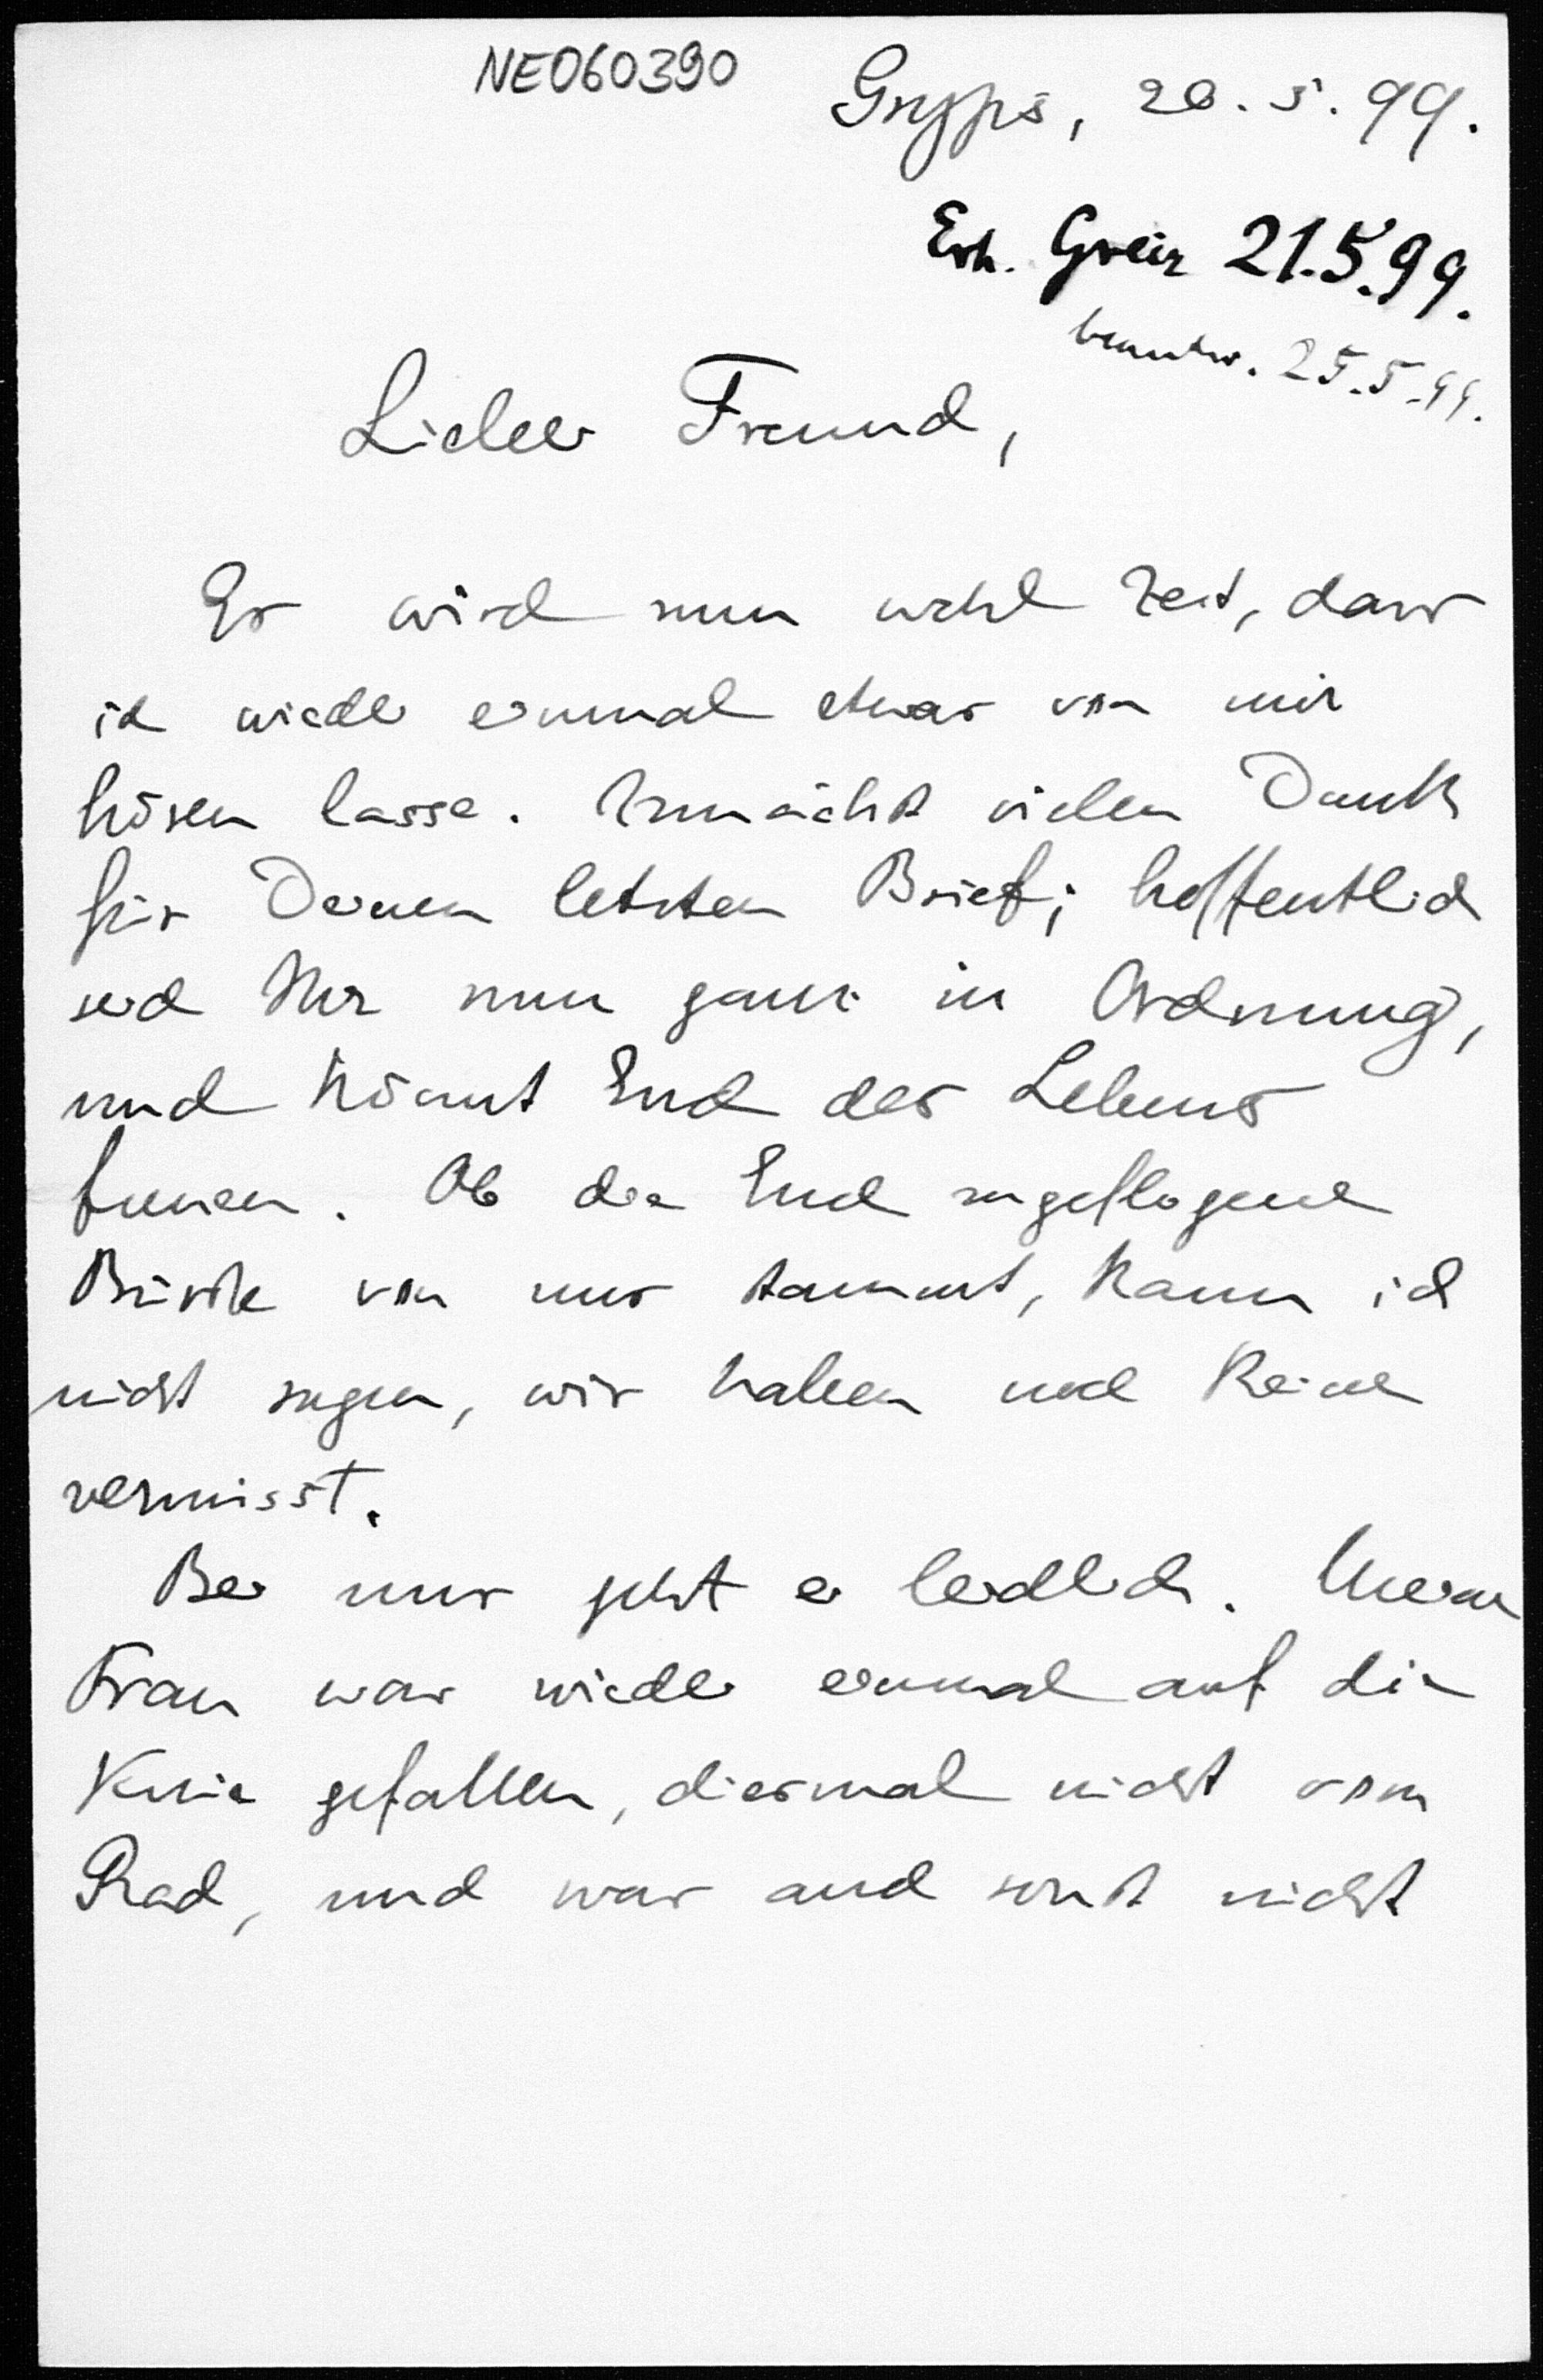 NE060390
Gryps, 20.5.99.
Erh. Greiz 21.5.99.
beantw. 25.5.99.
Lieber Freund,
Es wird nun wohl Zeit, dass
ich wieder einmal etwas von mir
hören lasse. Zunächst vielen Dank
für Deinen letzten Brief; hoffentlich
seid Ihr nun ganz in Ordnung,
und könnt Euch des Lebens
freuen. Ob die Euch zugeflogene
Bürste von uns stammt, kann ich
nicht sagen, wir haben noch keine
vermisst.
Bei uns geht es leidlich. Meine
Frau war wieder einmal auf die
Knie gefallen, diesmal nicht vom
Rad, und war auch sonst nicht